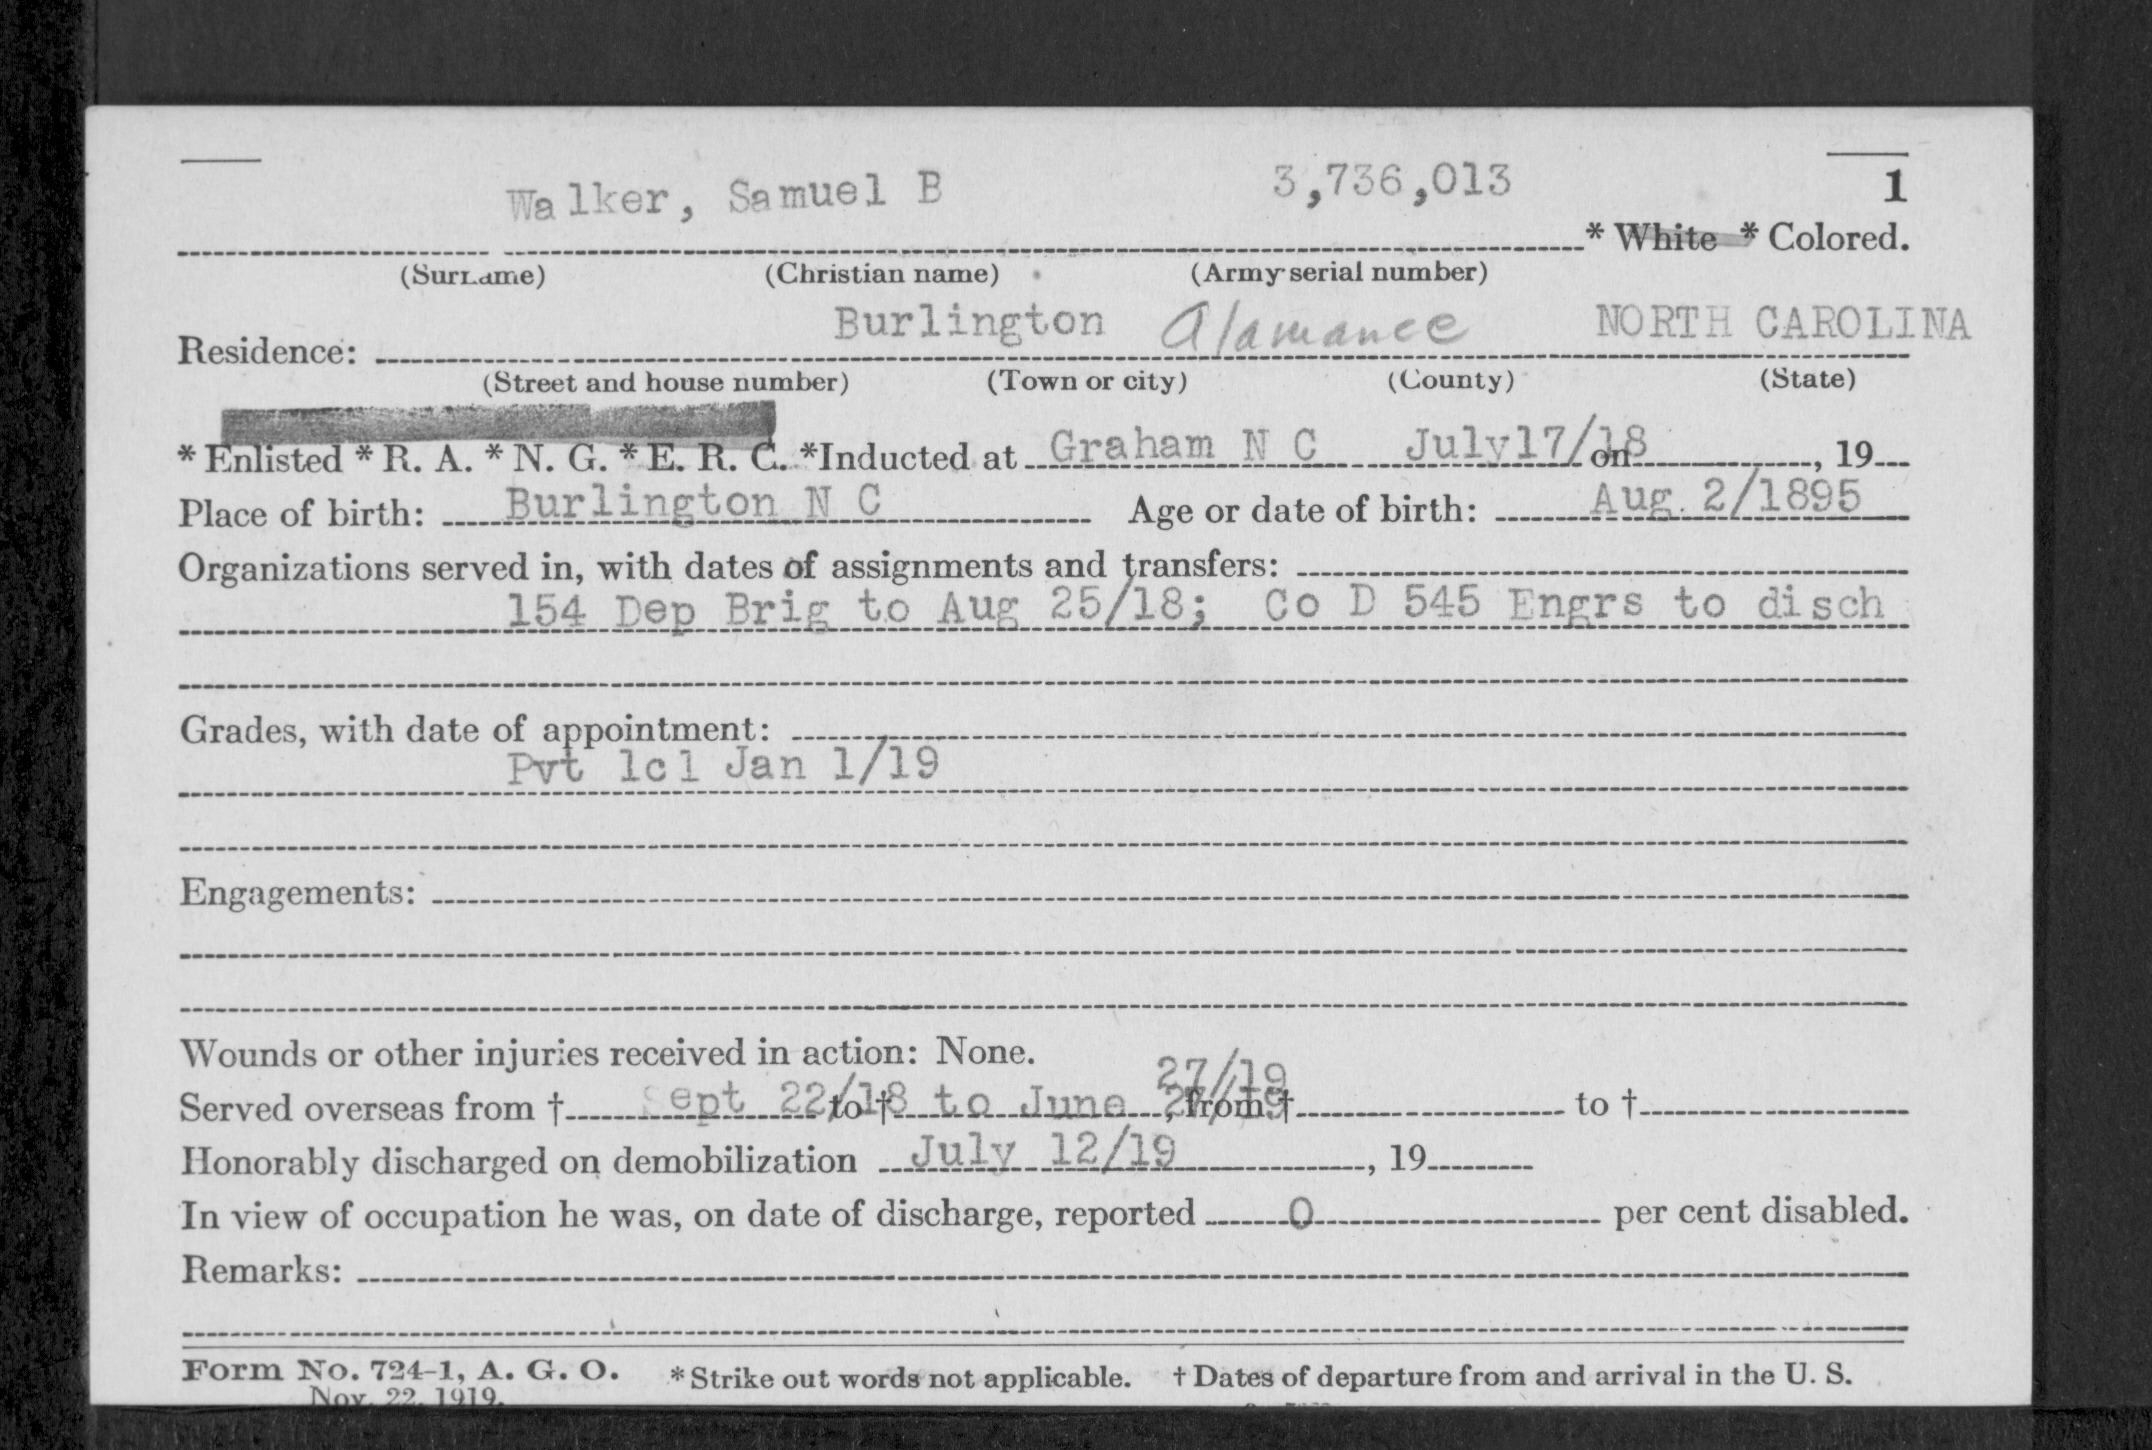 Walker, Samuel B 3,736,013 1
* White * Colored.
(Surname) (Christian name) (Army serial number)
Residence: Burlington Alamance NORTH CAROLINA
(Street and house number) (Town or city) (County) (State)
* Enlisted * R. A. * N. G. * E. R. C. *Inducted at Graham N C July17/18 on , 19
Place of birth: Burlington N C Age or date of birth: Aug. 2/1895
Organizations served in, with dates of assignments and transfers:
154 Dep Brig to Aug 25/18; Co D 545 Engrs to disch
Grades, with date of appointment:
Pvt 1cl Jan 1/19
Engagements:
Wounds or other injuries received in action: None.
27/19
Served overseas from † Sept 22/18 to † to June , from † to †
Honorably discharged on demobilization July 12/19 , 19
In view of occupation he was, on date of discharge, reported 0 per cent disabled.
Remarks:
Form No. 724-1, A. G. O. * Strike out words not applicable. † Dates of departure from and arrival in the U. S.
Nov. 22, 1919.